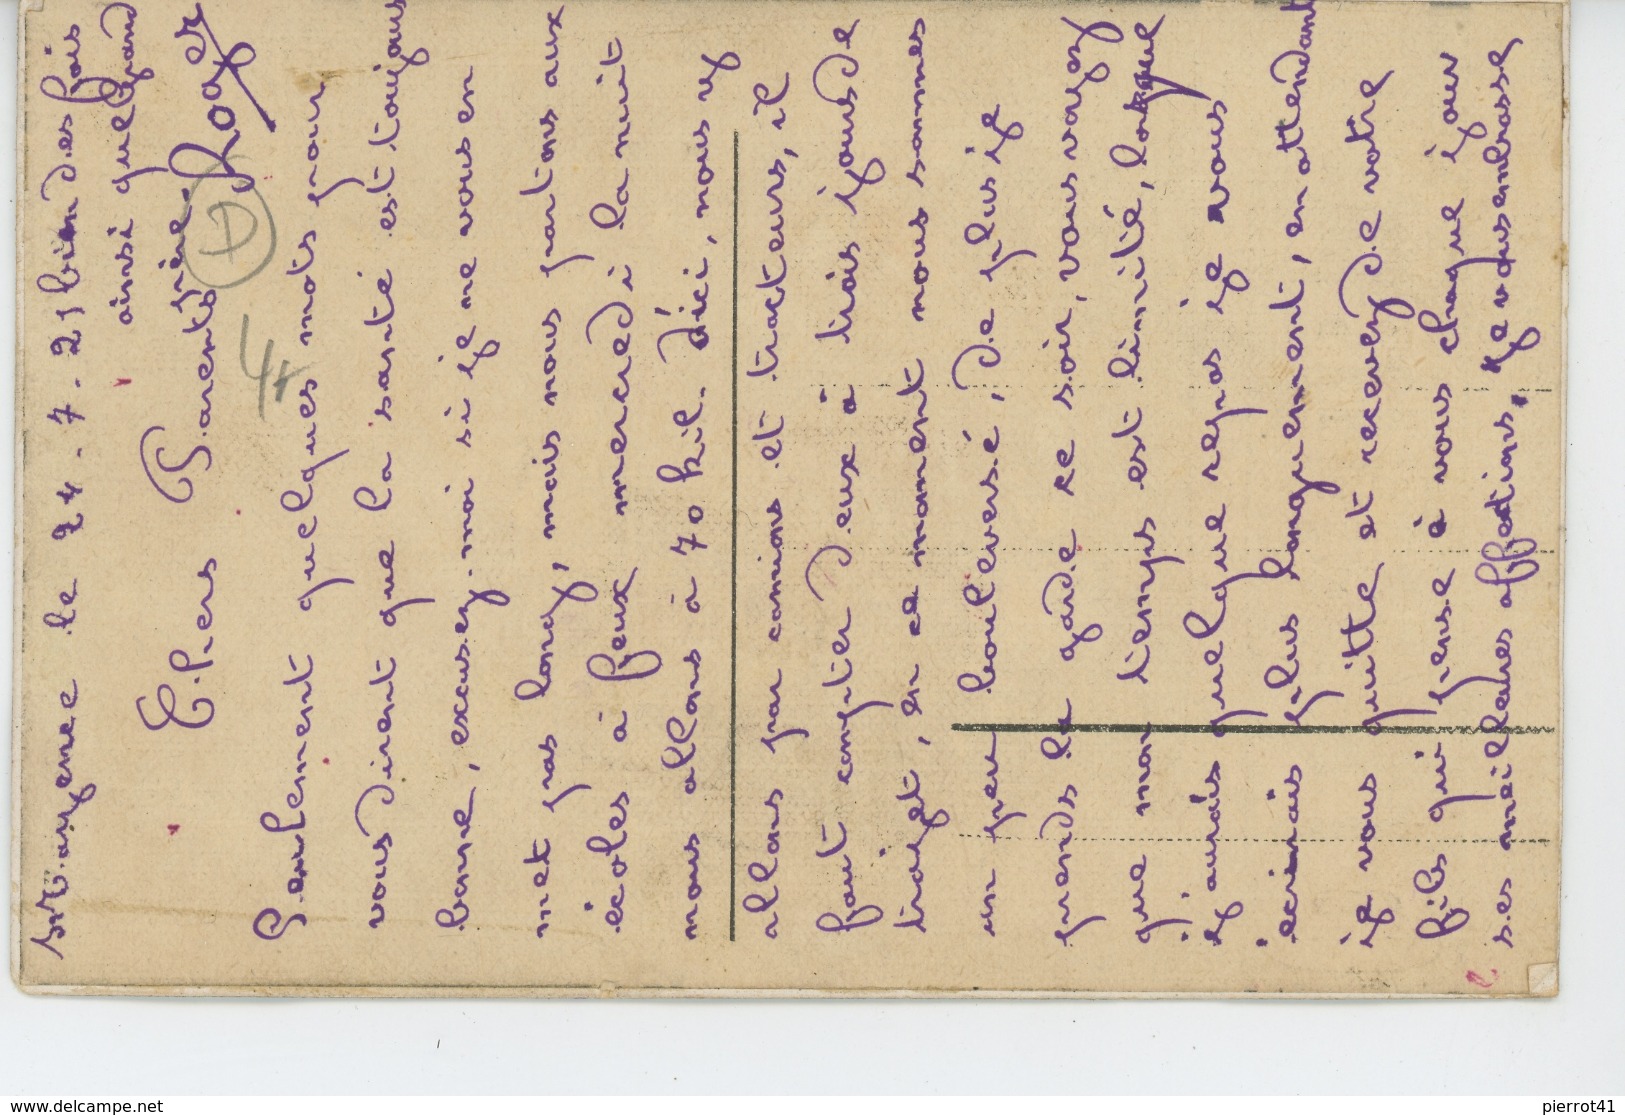 le 24.7.21 bien des fois
ainsi que grand
père. Roger
D
44
Chers Parents
Seulement quelques mots pour
vous dirent que la santé est toujours
bonne, excusez-moi si je ne vous en
met pas long, mais nous partons aux
écoles à feux mercredi la nuit
nous allons à 70 kil. dici, nous y
allons par camions et tracteurs, il
faut compter deux à trois jours de
trajet, en ce moment nous sommes
un peu bouleversé, de plus je
prends la garde ce soir, vous voyez
que mon temps est limité, losque
j'aurais quelque repos je vous
écrirais plus longuement, en attendant
je vous quitte et recevez de votre
fils qui pense à vous chaque jour
ses meilleures affections, Je vous embrasse
www.delcampe.net
pierrot41